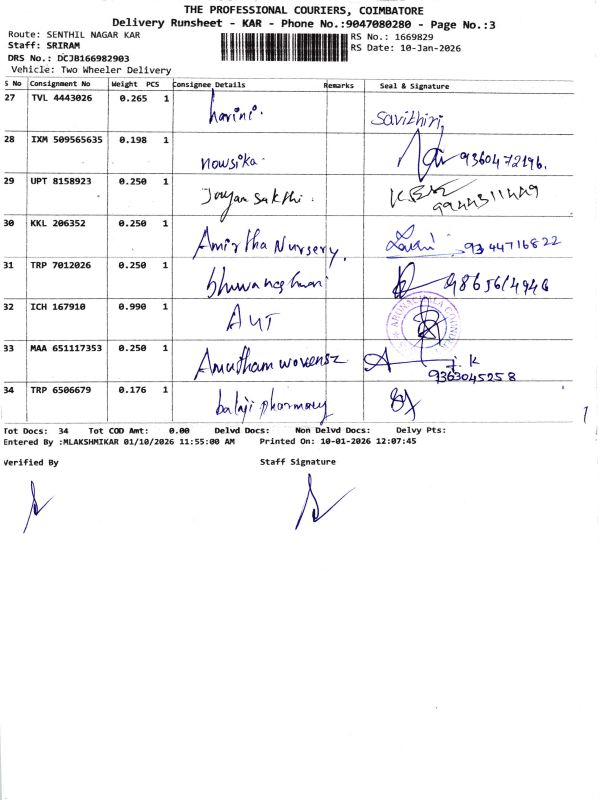 THE PROFESSIONAL COURIERS, COIMBATORE
Delivery Runsheet - KAR - Phone No.:9047080280 - Page No.:3
Route: SENTHIL NAGAR KAR
RS No.: 1669829
Staff: SRIRAM
RS Date: 10-Jan-2026
DRS No.: DCJB166982903
Vehicle: Two Wheeler Delivery
S No Consignment No Weight PCS Consignee Details Remarks Seal & Signature
27 TVL 4443026 0.265 1 harini. Savithiri
28 IXM 509565635 0.198 1 nowsika. 9360472196.
29 UPT 8158923 0.250 1 sakthi. 9944311449
30 KKL 206352 0.250 1 Amirtha Nursery. 9344716822
31 TRP 7012026 0.250 1 bhuwaneshwari
32 ICH 167910 0.990 1 AUT
33 MAA 651117353 0.250 1 Amutham wovensz J. K
9363045258
34 TRP 6506679 0.176 1 balaji pharmacy
Tot Docs: 34 Tot COD Amt: 0.00 Delvd Docs: Non Delvd Docs: Delvy Pts:
Entered By :MLAKSHMIKAR 01/10/2026 11:55:00 AM Printed On: 10-01-2026 12:07:45
Verified By Staff Signature